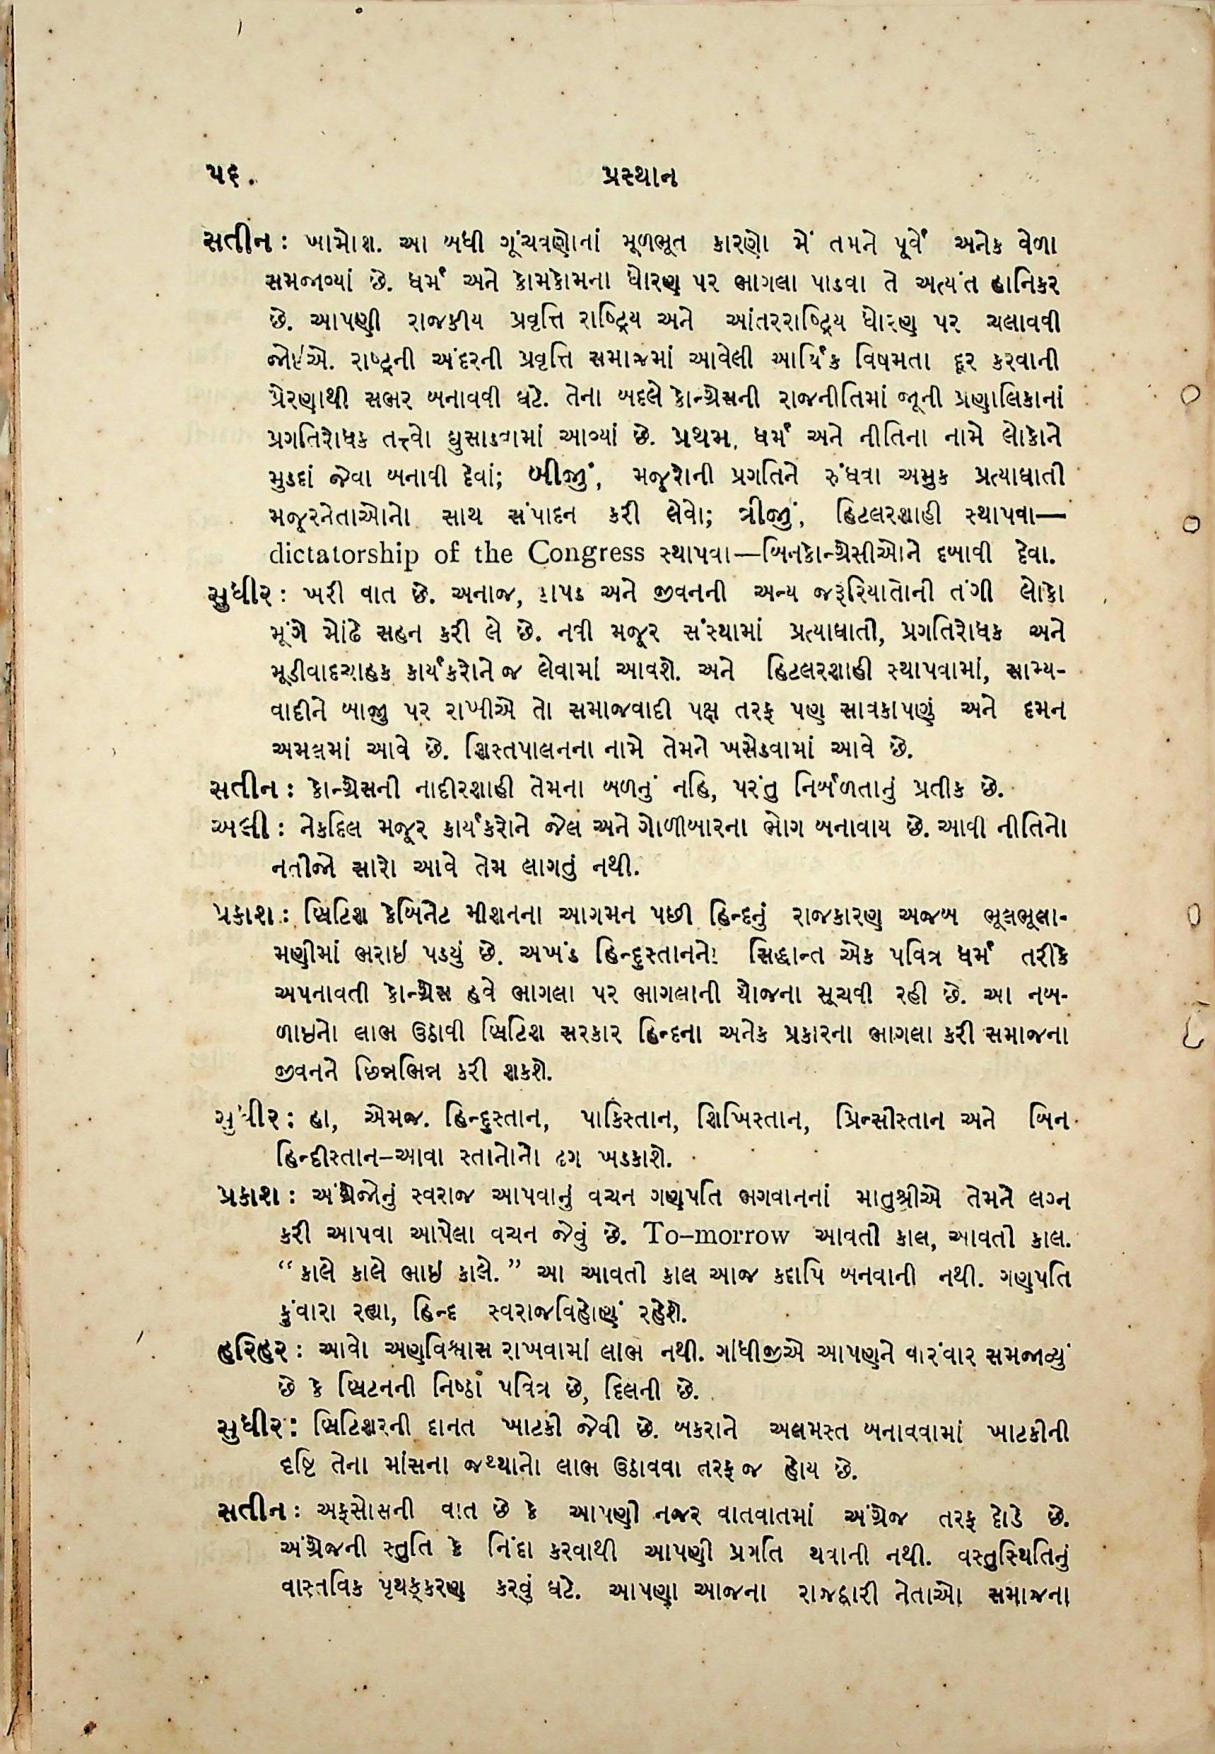 ૫૬. પ્રસ્થાન
સતીન : ખામોશ. આ બધી ગૂંચવણોનાં મૂળભૂત કારણો મેં તમને પૂર્વે અનેક વેળા
સમજાવ્યાં છે. ધર્મ અને કોમકોમના ધોરણ પર ભાગલા પાડવા તે અત્યંત હાનિકર
છે. આપણી રાજકીય પ્રવૃત્તિ રાષ્ટ્રિય અને આંતરરાષ્ટ્રિય ધોરણ પર ચલાવવી
જોઈએ. રાષ્ટ્રની અંદરની પ્રવૃત્તિ સમાજમાં આવેલી આર્થિક વિષમતા દૂર કરવાની
પ્રેરણાથી સભર બનાવવી ઘટે. તેના બદલે કોન્ગ્રેસની રાજનીતિમાં જૂની પ્રણાલિકાનાં
પ્રગતિરોધક તત્ત્વો ઘુસાડવામાં આવ્યાં છે. પ્રથમ, ધર્મ અને નીતિના નામે લોકોને
મુડદાં જેવા બનાવી દેવાં; બીજીું, મજૂરોની પ્રગતિને રુંધતા અમુક પ્રત્યાઘાતી
મજૂરનેતાઓનો સાથ સંપાદન કરી લેવો; ત્રીજીું, હિટલરશાહી સ્થાપવા—
dictatorship of the Congress સ્થાપવા—બિનકોન્ગ્રેસીઓને દબાવી દેવા.
સુધીર : ખરી વાત છે. અનાજ, કાપડ અને જીવનની અન્ય જરૂરિયાતોની તંગી લોકો
મૂંગે મોંઢે સહન કરી લે છે. નવી મજૂર સંસ્થામાં પ્રત્યાઘાતી, પ્રગતિરોધક અને
મૂડીવાદચાહક કાર્યકરોને જ લેવામાં આવશે. અને હિટલરશાહી સ્થાપવામાં, સામ્ય-
વાદીને બાજુ પર રાખીએ તો સમાજવાદી પક્ષ તરફ પણ સાવકાપણું અને દમન
અમલમાં આવે છે. શિસ્તપાલનના નામે તેમને ખસેડવામાં આવે છે.
સતીન : કોન્ગ્રેસની નાદીરશાહી તેમના બળનું નહિ, પરંતુ નિર્બળતાનું પ્રતીક છે.
અલી : નેકદિલ મજૂર કાર્યકરોને જેલ અને ગોળીબારના ભોગ બનાવાય છે. આવી નીતિનો
નતીજો સારો આવે તેમ લાગતું નથી.
પ્રકાશ : બ્રિટિશ કેબિનેટ મીશનના આગમન પછી હિન્દનું રાજકારણ અજબ ભૂલભૂલા-
મણીમાં ભરાઇ પડયું છે. અખંડ હિન્દુસ્તાનનો સિદ્ધાન્ત એક પવિત્ર ધર્મ તરીકે
અપનાવતી કોન્ગ્રેસ હવે ભાગલા પર ભાગલાની યોજના સૂચવી રહી છે. આ નબ-
ળાઇનો લાભ ઉઠાવી બ્રિટિશ સરકાર હિન્દના અનેક પ્રકારના ભાગલા કરી સમાજના
જીવનને છિન્નભિન્ન કરી શકશે.
સુધીર : હા, એમજ. હિન્દુસ્તાન, પાકિસ્તાન, શિખિસ્તાન, પ્રિન્સીસ્તાન અને બિન
હિન્દીસ્તાન–આવા સ્તાનોનો ઢગ ખડકાશે.
પ્રકાશ : અંગ્રેજોનું સ્વરાજ આપવાનું વચન ગણપતિ ભગવાનનાં માતુશ્રીએ તેમને લગ્ન
કરી આપવા આપેલા વચન જેવું છે. To-morrow આવતી કાલ, આવતી કાલ.
“કાલે કાલે ભાઇ કાલે.” આ આવતી કાલ આજ કદાપિ બનવાની નથી. ગણપતિ
કુંવારા રહ્યા, હિન્દ સ્વરાજવિહોણું રહેશે.
હરિહર : આવો અણવિશ્વાસ રાખવામાં લાભ નથી. ગાંધીજીએ આપણને વારંવાર સમજાવ્યું
છે કે બ્રિટનની નિષ્ઠા પવિત્ર છે, દિલની છે.
સુધીર : બ્રિટિશરની દાનત ખાટકી જેવી છે. બકરાને અલમસ્ત બનાવવામાં ખાટકીની
દૃષ્ટિ તેના માંસના જથ્થાનો લાભ ઉઠાવવા તરફ જ હોય છે.
સતીન : અફસોસની વાત છે કે આપણી નજર વાતવાતમાં અંગ્રેજ તરફ દોડે છે.
અંગ્રેજની સ્તુતિ કે નિંદા કરવાથી આપણી પ્રગતિ થવાની નથી. વસ્તુસ્થિતિનું
વાસ્તવિક પૃથક્કરણ કરવું ઘટે. આપણા આજના રાજદ્વારી નેતાઓ સમાજના